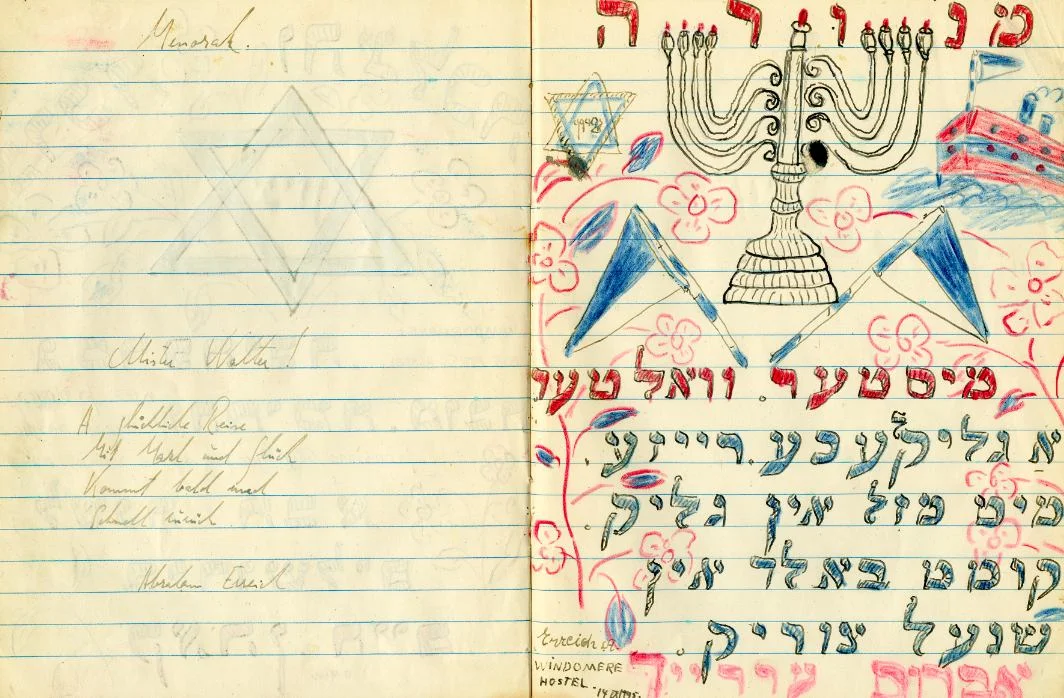 Menorah.
Mister Walter!
A glückliche Reise
Mit Masl und Glück
Kommt bald und
Schnell zurück
Abraham Erreich
מנורה
מיסטער. וואלטער
א גליקלעכע.רייזע.
מיט מזל אין גליק.
קומט באלד אין
שנעל צוריק.
אברהם עררייך
Erreich A.
WINDOMERE
HOSTEL.